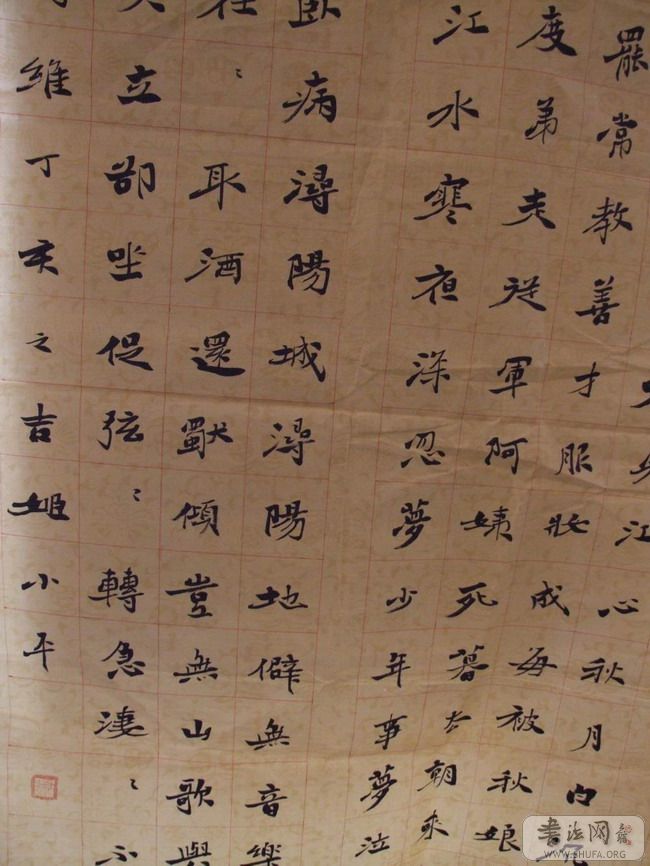 江心秋月白
罷常教善才服妝成每被秋娘
度弟走從軍阿姨死暮去朝來
江水寒夜深忽夢少年事夢泣
臥病潯陽城潯陽地僻無音樂
往〻取酒還獨傾豈無山歌與
久立卻坐促弦〻轉急淒〻不
維丁亥之吉姬小平
書法网
SHUFA.ORG